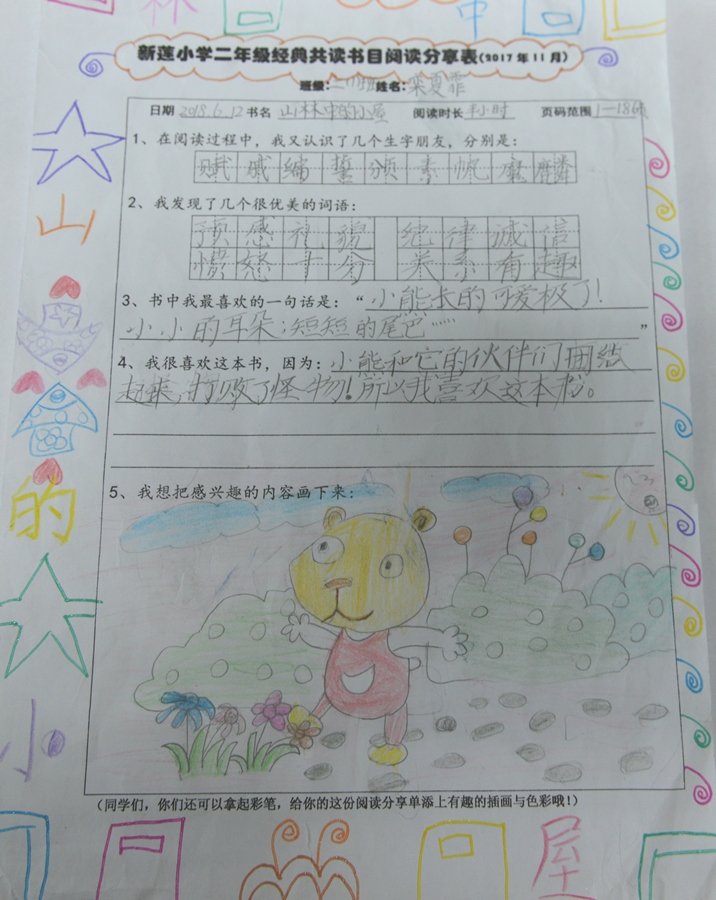 林 中
新莲小学二年级经典共读书目阅读分享表(2017年11月)
班级: 姓名: 夏霏
日期 2018.6.12 书名 山林中的小屋 阅读时长 半小时 页码范围 1—186
1、在阅读过程中，我又认识了几个生字朋友，分别是：
赋 戚 编 誓 颁 素 帆 麟
2、我发现了几个很优美的词语：
预感 礼貌 纪律 诚信
愤怒 十分 关系 有趣
3、书中我最喜欢的一句话是：“小熊长的可爱极了！
小小的耳朵；短短的尾巴……”
4、我很喜欢这本书，因为：小熊和它的伙伴们团结
起来，打败了怪物！所以我喜欢这本书。
5、我想把感兴趣的内容画下来：
山
的
小
(同学们，你们还可以拿起彩笔，给你的这份阅读分享单添上有趣的插画与色彩哦！)
屋